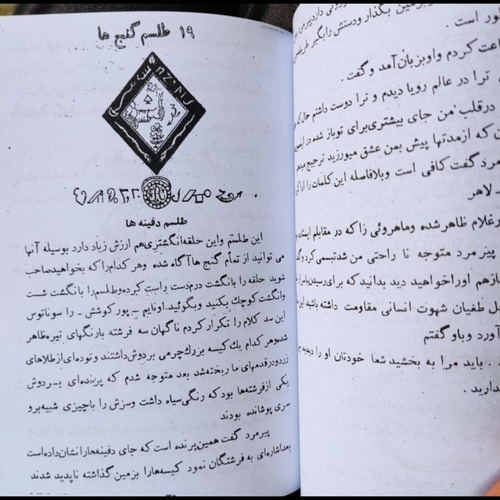 ۱۹ طلسم گنج ها
طلسم دفینه ها
این طلسم واین حلقه‌انگشتری‌هم ارزش زیاد دارد بوسیله آنها
می توانید از تمام گنج ها آگاه شده وهر کدام را که بخواهید صاحب
شوید حلقه را بانگشت دست راست کرده و طلسم را بانگشت شست
وانگشت کوچک بکنید وبگوئید. اونایم - پور کوشش . را سوناتوس
این سه کلام را تکرار کردم ناگهان سه فرشته بارنگهای تیره ظاهر
شده وهر کدام یک کیسه بزرگ چرمی بردوش داشتند و توده‌ای از طلاهای
زرد در قدمهای ما ریخته شد بعد متوجه شدم که پرنده‌ای بردوش
یکی از فرشته‌ها بود که رنگی سیاه داشت و سرش را با چیزی شبیه برو
سری پوشانده بودند
پیرمرد گفت همین پرنده است که جای دفینه‌ها را نشان داده است
بعد اشاره‌ای به فرشتگان نمود کیسه‌ها بزمین گذاشته ناپدید شدند
زمین بگذار و دستش را بگیر
ور است .
عت کردم و او بزبان آمد و گفت .
ترا در عالم رویا دیدم و ترا دوست داشتم
در قلب من جای بیشتری برای تو باز شده
که از مدتها پیش بمن عشق میورزید ترجیح
مرد گفت کافی است و بلافاصله این کلمات را
لاهر
غلام ظاهر شده و ماهروئی را که در مقابلم
پیر مرد متوجه نا راحتی من شد تبسمی کرد
ازهم اورا خواهید دید بدانید که برای رسیدن
بل طغیان شهوت انسانی مقاومت داشته باشید
آورد و باو گفتم
. باید مرا به بخشید شما خودتان او را
دارید .